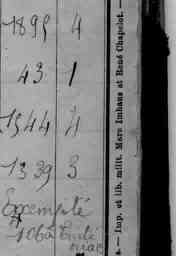 1895 4
43 1
1544 4
1339 3
Exempté
s. — Imp. et lib. milit. Marc Imhaus et René Chapelot. —